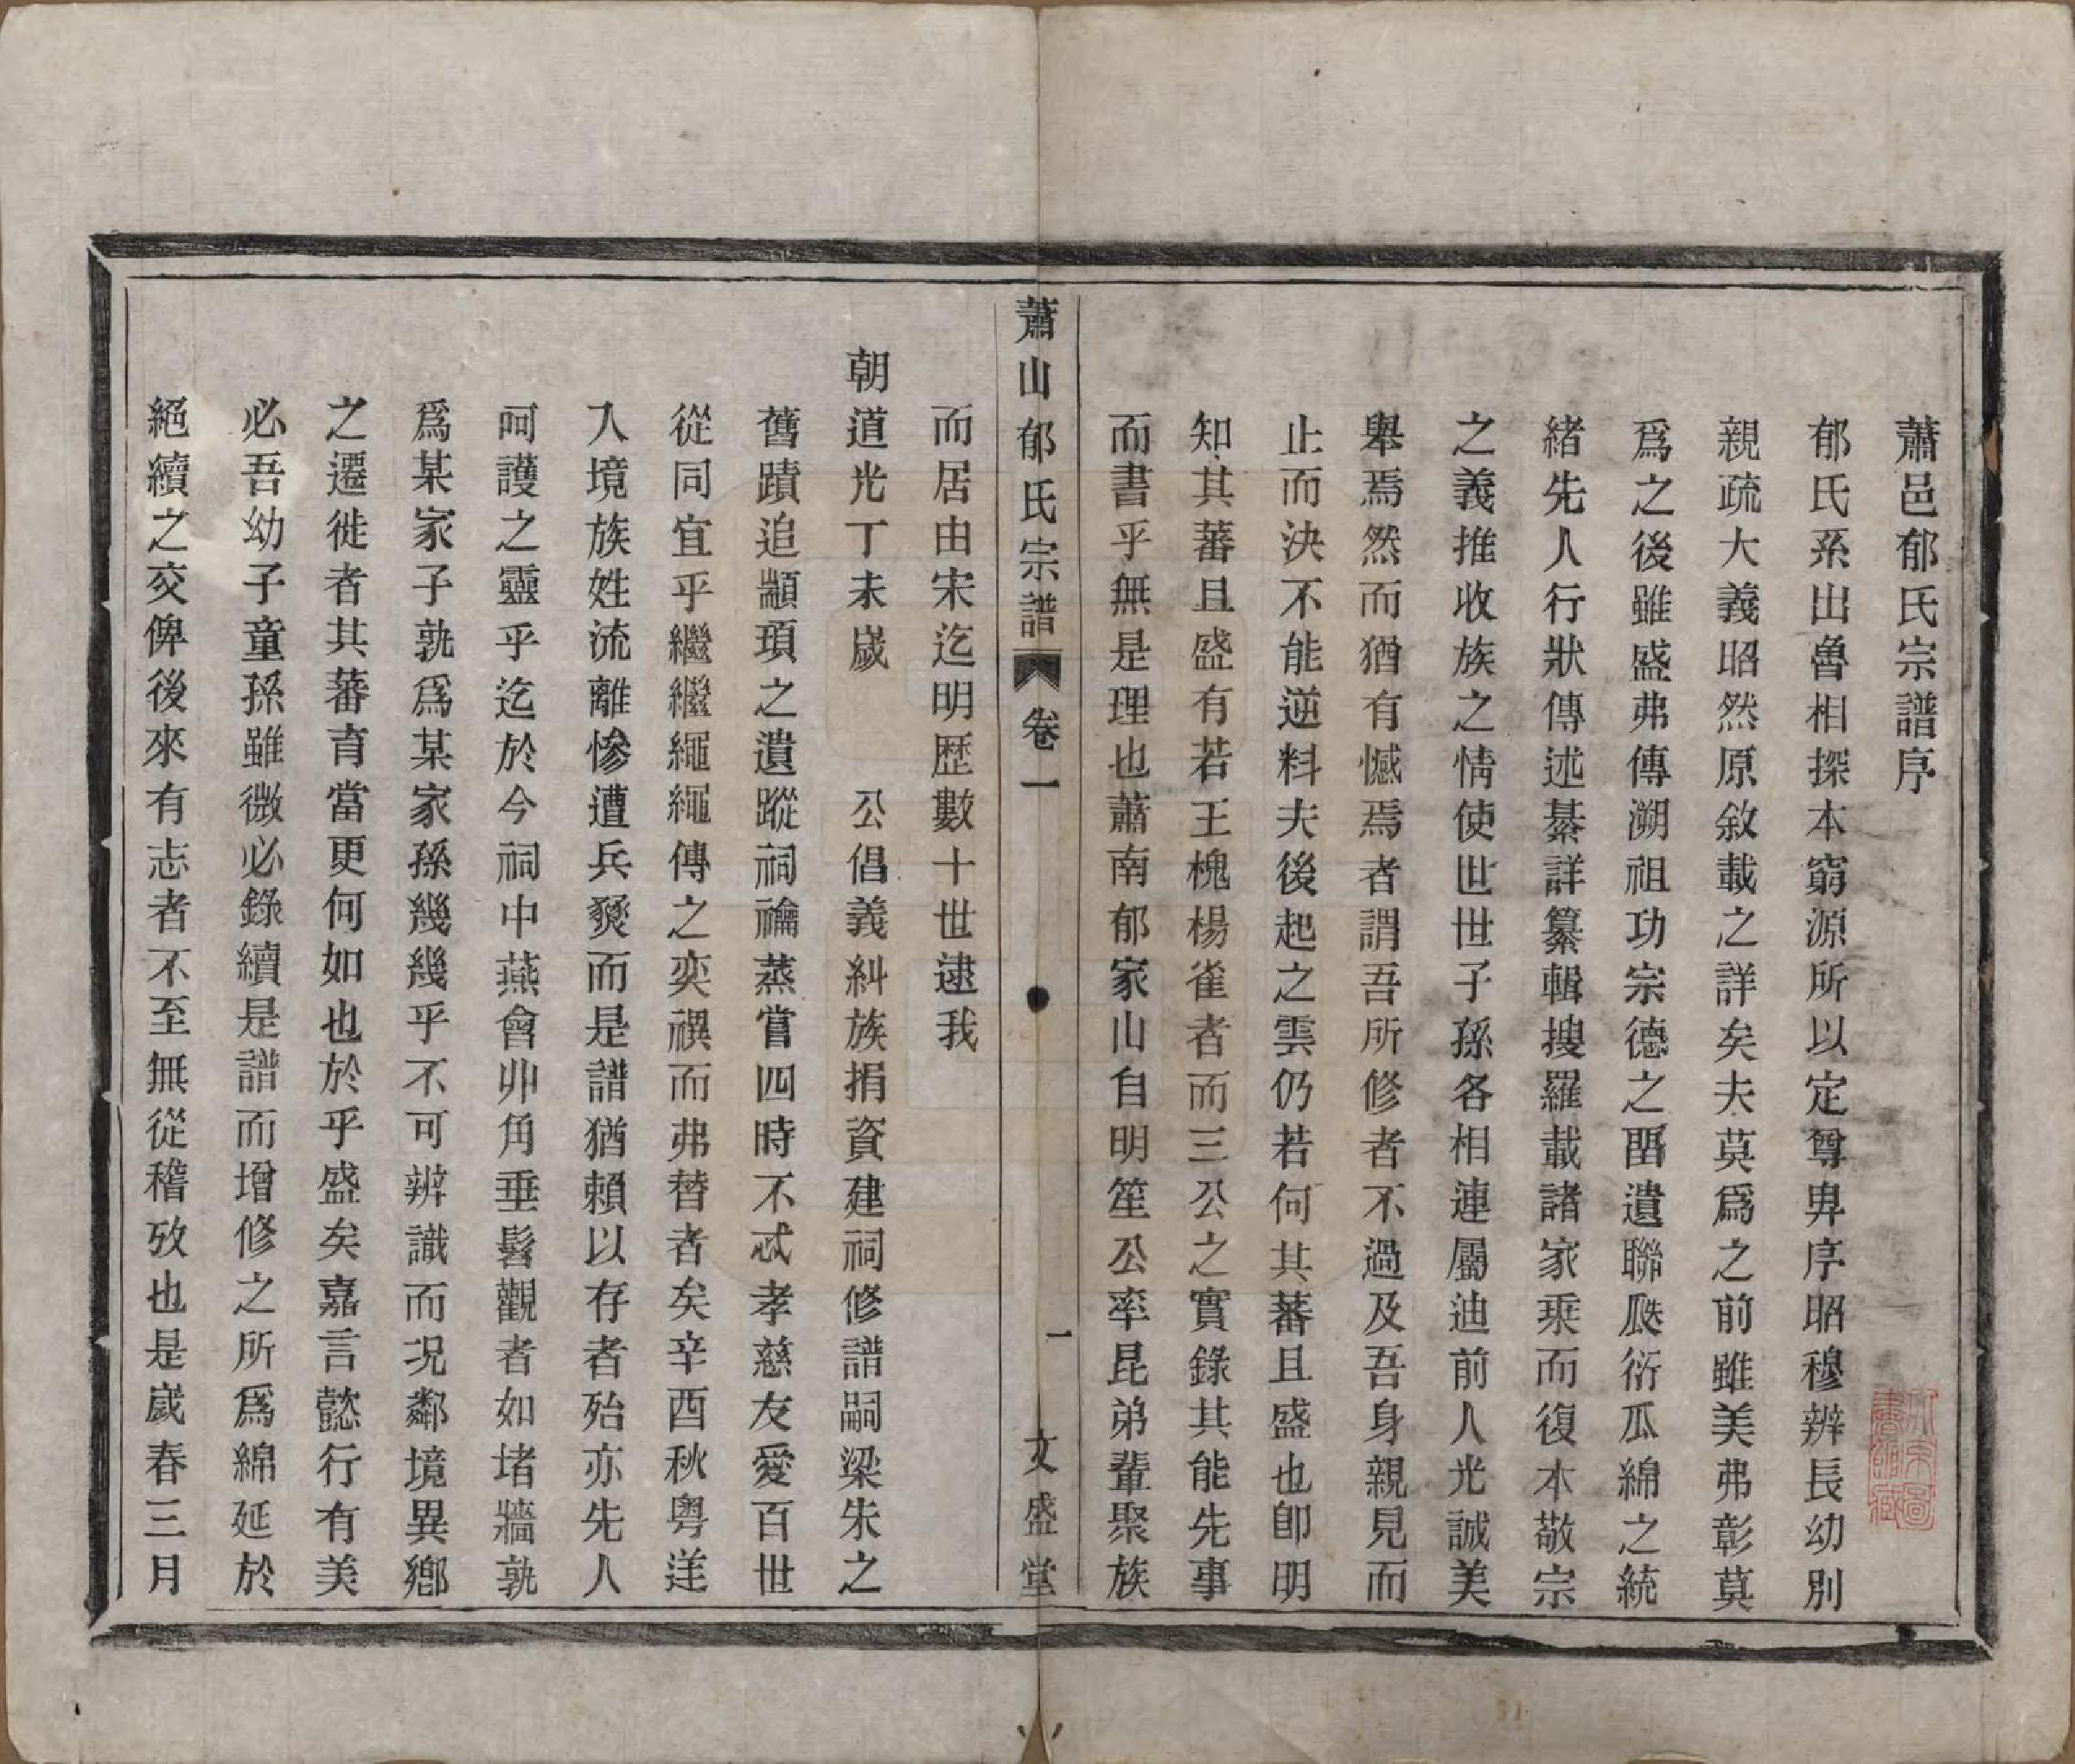 蕭邑郁氏宗譜序
郁氏系出魯相探本窮源所以定尊卑序昭穆辨長幼別
親疏大義昭然原敘載之詳矣夫莫爲之前雖美弗彰莫
爲之後雖盛弗傳溯祖功宗德之畱遺聯瓜瓞衍瓜綿之統
緒先人行狀傳述綦詳纂輯搜羅載諸家乘而復本敬宗
之義推收族之情使世世子孫各相連屬迪前人光誠美
舉焉然而猶有憾焉者謂吾所修者不過及吾身親見而
止而決不能逆料夫後起之雲仍若何其蕃且盛也卽明
知其蕃且盛有若王槐楊雀者而三公之實錄其能先事
而書乎無是理也蕭南郁家山自明笙公率昆弟輩聚族
蕭山郁氏宗譜 卷一 一 文盛堂
而居由宋迄明歷數十世逮我
朝道光丁未歲 公倡義糾族捐資建祠修譜嗣梁朱之
舊蹟追顓頊之遺蹤祠禴蒸嘗四時不忒孝慈友愛百世
從同宜乎繼繼繩繩傳之奕禩而弗替者矣辛酉秋粤逆
入境族姓流離慘遭兵燹而是譜猶賴以存者殆亦先人
呵護之靈乎迄於今祠中燕會丱角垂髫觀者如堵牆孰
爲某家子孰爲某家孫幾幾乎不可辨識而況鄰境異鄉
之遷徙者其蕃育當更何如也於乎盛矣嘉言懿行有美
必吾幼子童孫雖微必錄續是譜而增修之所爲綿延於
絕續之交俾後來有志者不至無從稽攷也是歲春三月